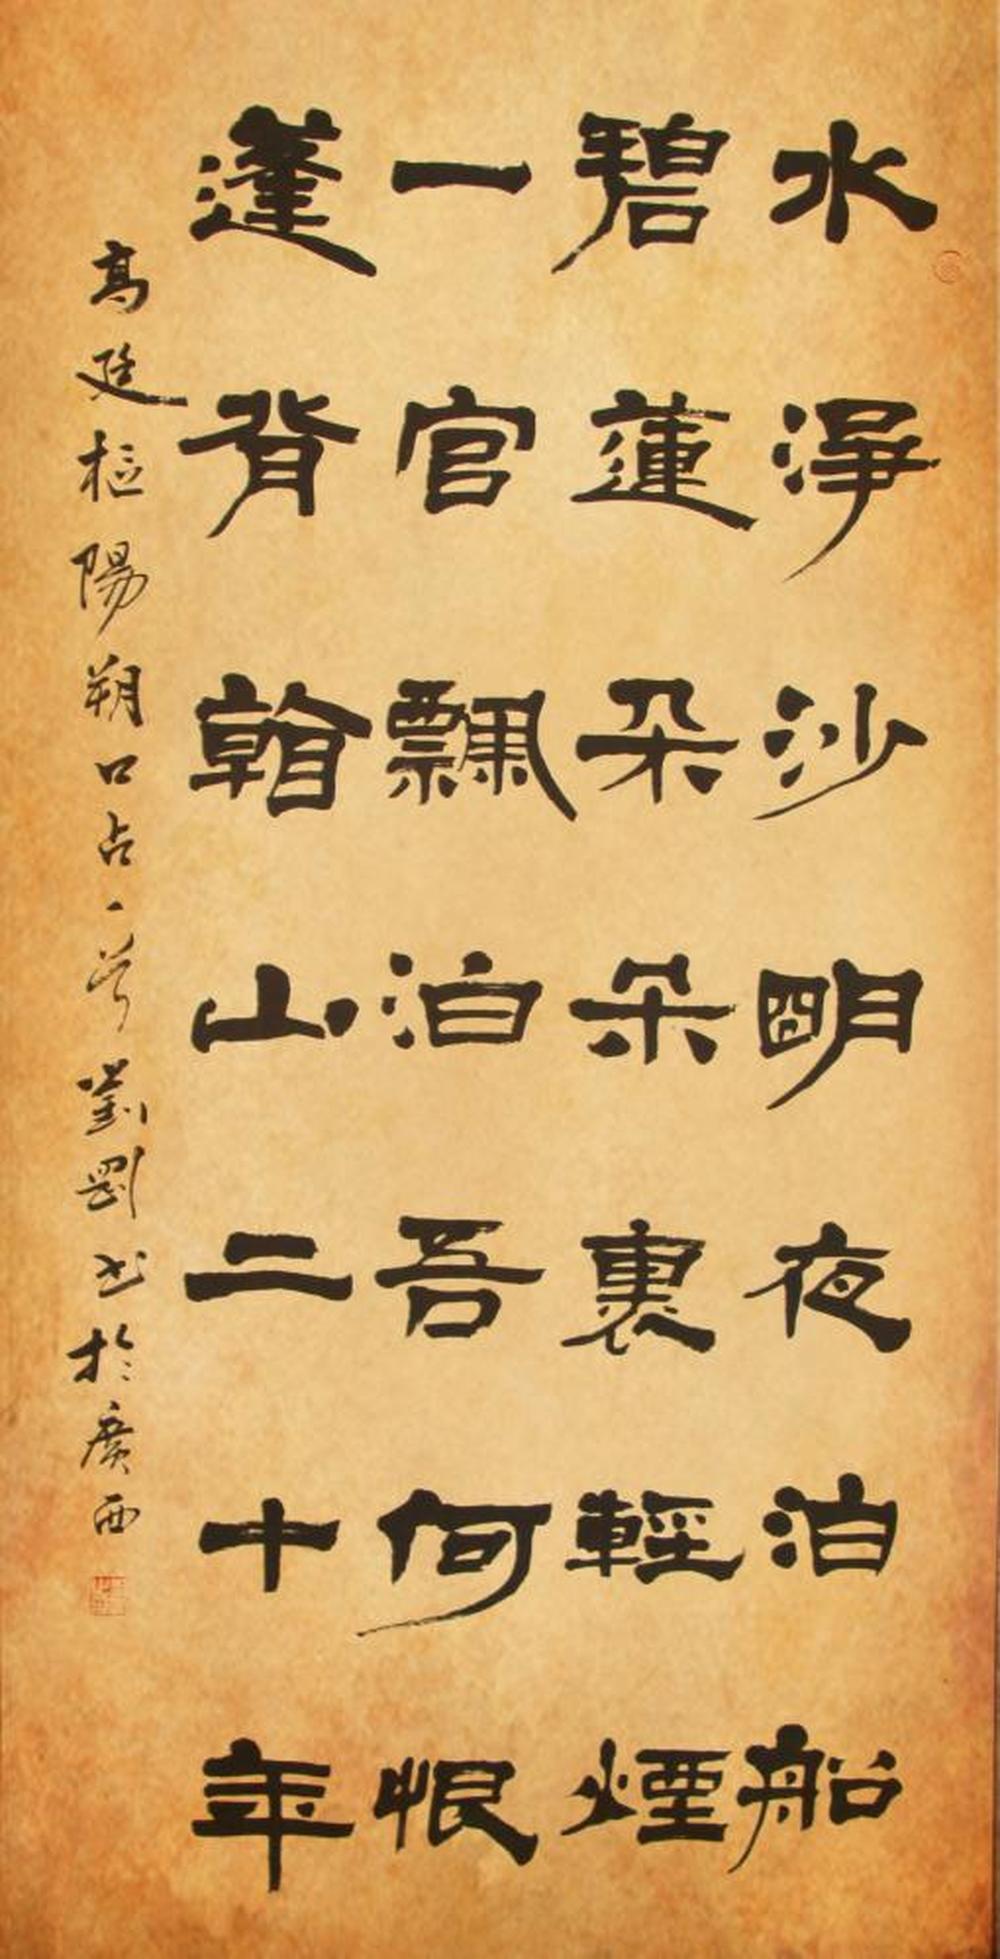 水淨沙明夜泊船
碧蓮朵朵裏輕煙
一官飄泊吾何恨
蓬背看山二十年
高廷樞陽朔口占一首劉剛書於廣西